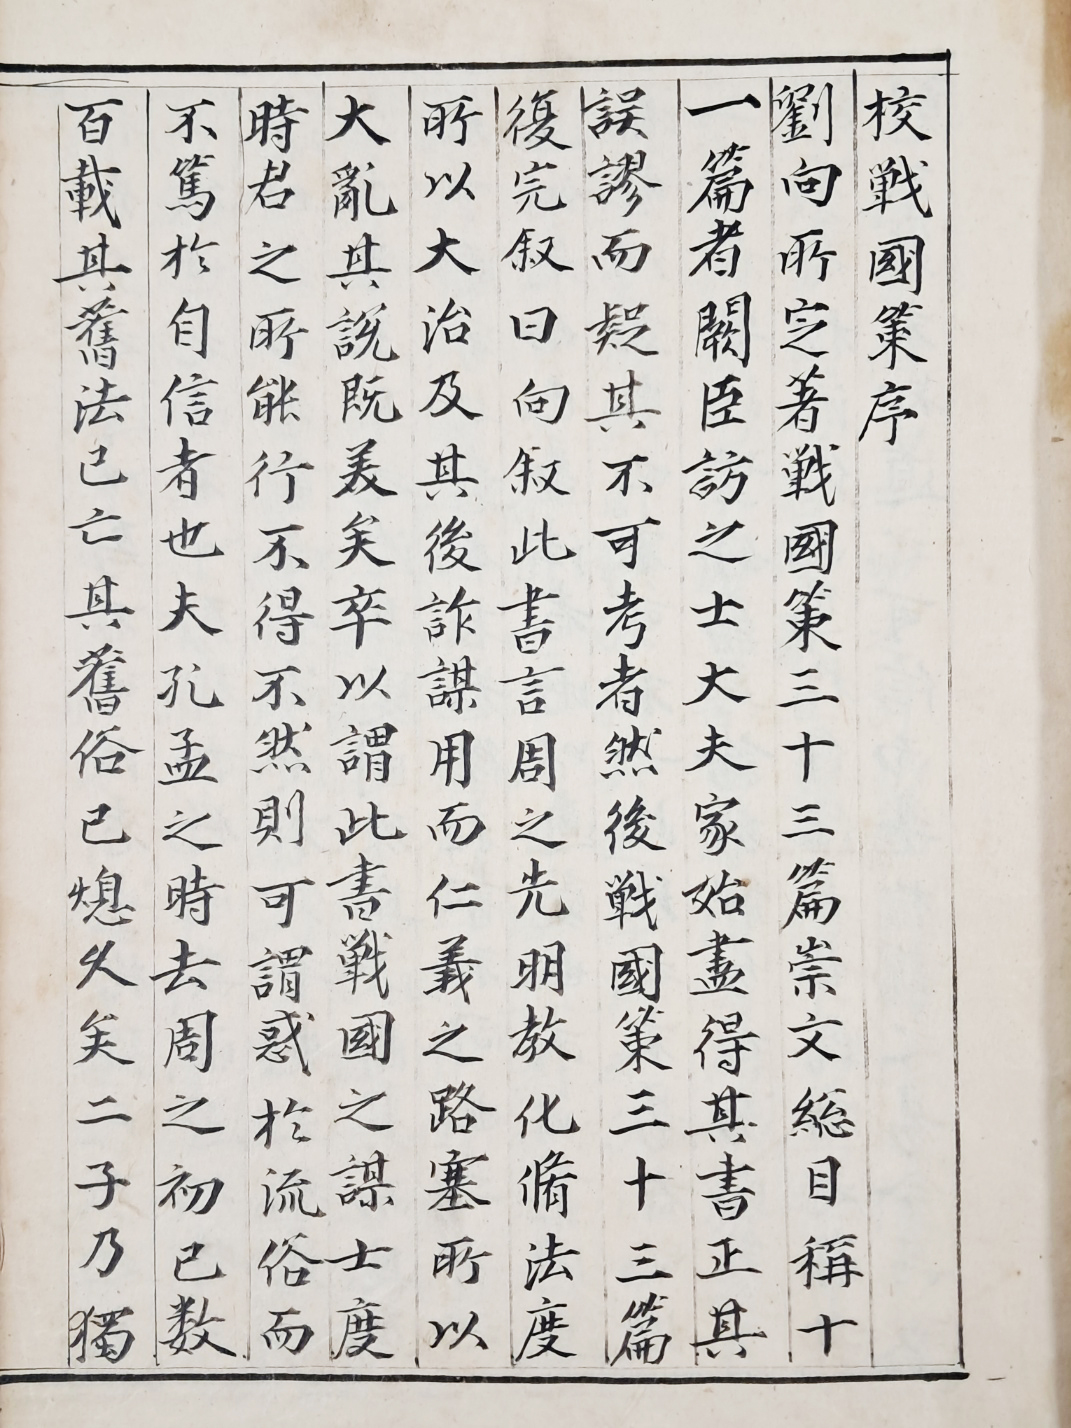 校戦國策序
劉向所定著戰國策三十三篇崇文総目稱十
一篇者闕臣訪之士大夫家始盡得其書正其
誤謬而疑其不可考者然後戰國策三十三篇
復完叙曰向叙此書言周之先明教化脩法度
所以大治及其後詐謀用而仁義之路塞所以
大亂其說既美矣卒以謂此書戰國之謀士度
時君之所能行不得不然則可謂惑於流俗而
不篤於自信者也夫孔孟之時去周之初已数
百載其舊法已亡其舊俗已熄久矣二子乃獨